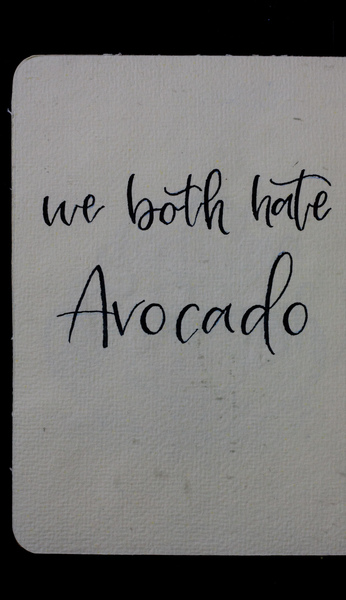 we both hate
Avocado